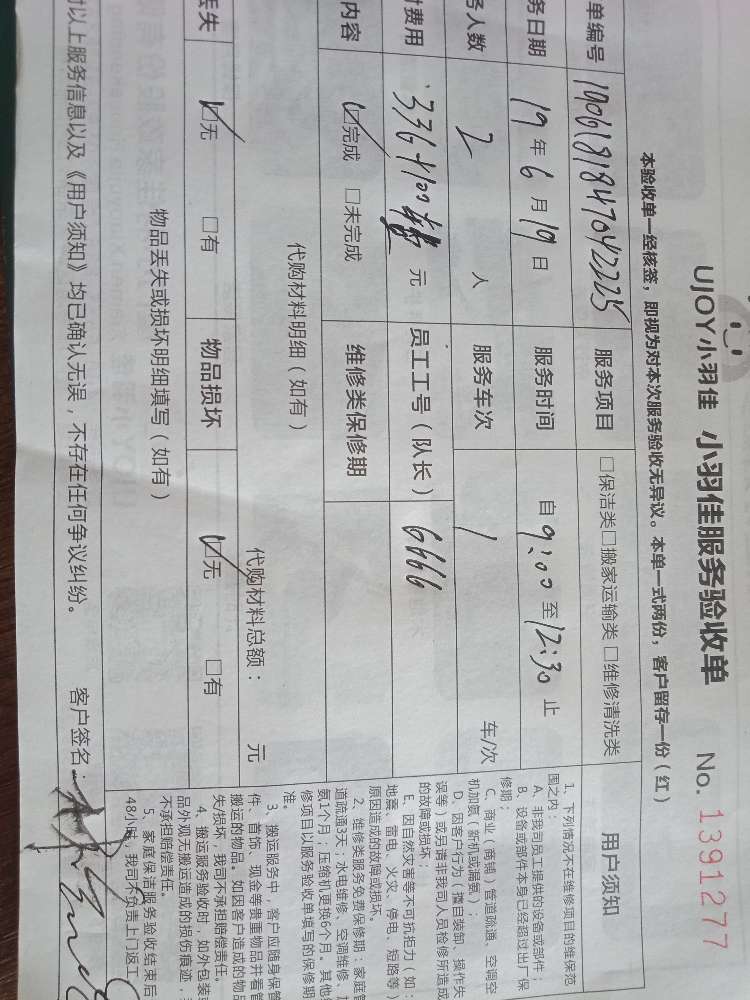 UJOY小羽佳 小羽佳服务验收单 No. 1391277
本验收单一经核签，即视为对本次服务验收无异议。本单一式两份，客户留存一份（红）
单编号 1906181847042225 服务项目 □保洁类□搬家运输类□维修清洗类
务日期 19年6月19日 服务时间 自9:00至12:30止
务人数 2 人 服务车次 1 车/次
费用 336+100 元 员工工号（队长） 6666
内容 ☑完成 □未完成 维修类保修期
代购材料明细（如有）
代购材料总额： 元
丢失 ☑无 □有 物品损坏 ☑无 □有
物品丢失或损坏明细填写（如有）
以上服务信息以及《用户须知》均已确认无误，不存在任何争议纠纷。 客户签名：
用户须知
1、下列情况不在维修项目的维保范
围之内：
A、非我司员工提供的设备或部件；
B、设备或部件本身已经超过出厂保
修期；
C、商业（商铺）管道疏通、空调空
机加氨（新机或漏氨）；
D、因客户行为（擅自装卸、操作失
误等）或另请非我司人员检修所造成
的故障或损坏；
E、因自然灾害等不可抗拒力（如：
地震、雷电、火灾、停电、短路等）
原因造成的故障或损坏。
2、维修类服务免费保修期：家庭管
道疏通3天；水电维修、空调维修、加
氨1个月；压缩机更换6个月。其他维
修项目以服务验收单填写的保修期
准。
3、搬运服务中，客户应随身保管
件、首饰、现金等贵重物品并看管
搬运的物品。如因客户造成的物品
失/损坏，我司不承担赔偿责任。
4、搬运服务验收时，如外包装或
品外观无搬运造成的损伤痕迹，
不承担赔偿责任。
5、家庭保洁服务验收结束后
48小时，我司不负责上门返工